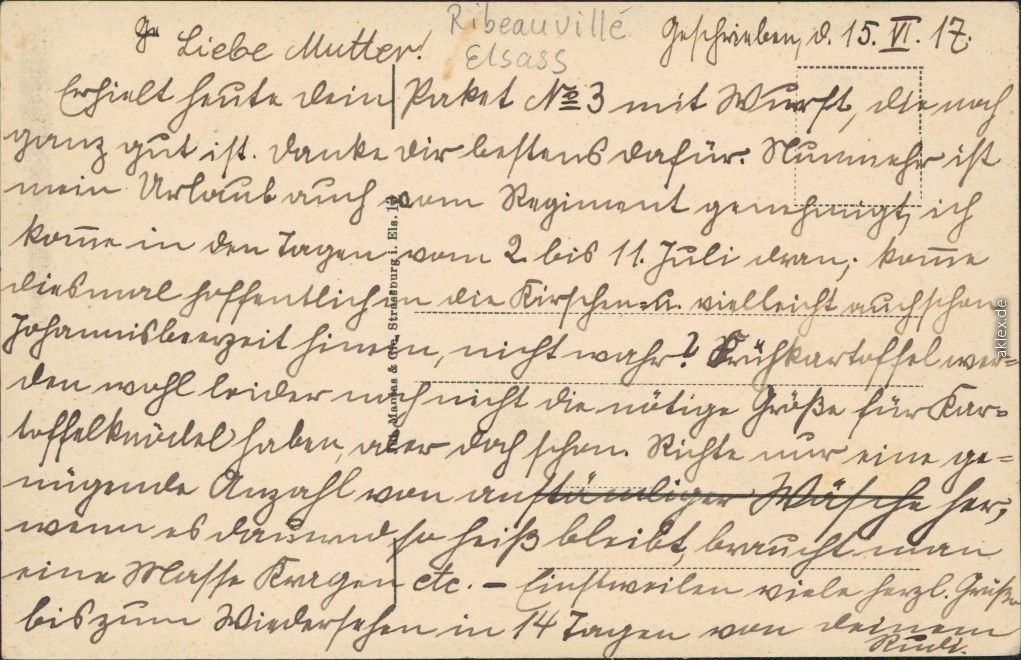 Ribeauvillé
Elsass
Geschrieben, d. 15. VI. 17.
Liebe Mutter!
Erhielt heute dein Paket No 3 mit Wurst, die noch
ganz gut ist. Danke dir bestens dafür. Nunmehr ist
mein Urlaub auch vom Regiment genehmigt, ich
kom̄e in den Tagen vom 2. bis 11. Juli dran; kom̄e
diesmal hoffentlich in die Kirschen- u. vielleicht auch schon
Johannisbeerzeit hinein, nicht wahr? Frühkartoffel wer=
den wohl leider noch nicht die nötige Größe für Kar=
toffelknödel haben, aber doch schon. Richte nur eine ge=
nügende Anzahl von anständiger Wäsche her,
wenn es dauernd so heiß bleibt, braucht man
eine Masse Kragen etc. – Einstweilen viele herzl. Grüße
bis zum Wiedersehen in 14 Tagen von deinem
Rudi.
Manias & Cie. Strassburg i. Els.
aklex.de